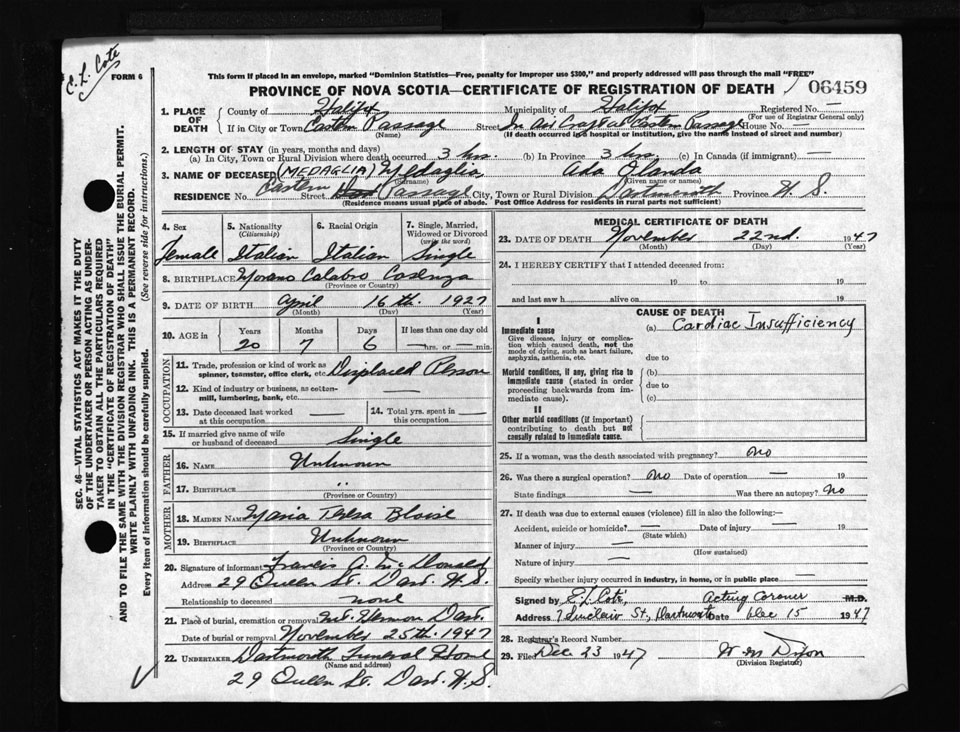 E. L. Cote
FORM 6
This form if placed in an envelope, marked "Dominion Statistics—Free, penalty for improper use $300," and properly addressed will pass through the mail "FREE"
PROVINCE OF NOVA SCOTIA—CERTIFICATE OF REGISTRATION OF DEATH 06459
1. PLACE OF DEATH County of Halifax Municipality of Halifax Registered No. —
(For use of Registrar General only)
If in City or Town Eastern Passage Street In Air Craft at Eastern Passage House No. —
(Name) (If death occurred in a hospital or institution, give the name instead of street and number)
2. LENGTH OF STAY (in years, months and days)
(a) In City, Town or Rural Division where death occurred 3 hrs. (b) In Province 3 hrs. (c) In Canada (if immigrant) —
3. NAME OF DECEASED (MEDAGLIA) Medaglia, Ada Orlanda
(Surname) (Given name or names)
RESIDENCE No. Eastern Street Passage City, Town or Rural Division Dartmouth Province N. S.
(Residence means usual place of abode. Post Office Address for residents in rural parts not sufficient)
SEC. 46—VITAL STATISTICS ACT MAKES IT THE DUTY
OF THE UNDERTAKER OR PERSON ACTING AS UNDER-
TAKER TO OBTAIN ALL THE PARTICULARS REQUIRED
IN THE "CERTIFICATE OF REGISTRATION OF DEATH"
AND TO FILE THE SAME WITH THE DIVISION REGISTRAR WHO SHALL ISSUE THE BURIAL PERMIT.
WRITE PLAINLY WITH UNFADING INK. THIS IS A PERMANENT RECORD.
Every item of information should be carefully supplied. (See reverse side for instructions.)
4. Sex
Female
5. Nationality
(Citizenship)
Italian
6. Racial Origin
Italian
7. Single, Married, Widowed or Divorced
(write the word)
Single
8. BIRTHPLACE Morano Calabro Cosenza
(Province or Country)
9. DATE OF BIRTH April 16th. 1927
(Month) (Day) (Year)
10. AGE in Years Months Days If less than one day old
20 7 6 —hrs. or —min.
OCCUPATION
11. Trade, profession or kind of work as
spinner, teamster, office clerk, etc. Displaced Person
12. Kind of industry or business, as cotton-
mill, lumbering, bank, etc. —
13. Date deceased last worked
at this occupation —
14. Total yrs. spent in
this occupation —
15. If married give name of wife
or husband of deceased Single
FATHER
16. NAME Unknown
17. BIRTHPLACE ,,
(Province or Country)
MOTHER
18. MAIDEN NAME Maria Teresa Bloise
19. BIRTHPLACE Unknown
(Province or Country)
20. Signature of informant Francis A. McDonald
Address 29 Queen St. Dart. N. S.
Relationship to deceased none
21. Place of burial, cremation or removal Mt. Hermon Dart.
Date of burial or removal November 25th. 1947
22. UNDERTAKER Dartmouth Funeral Home
(Name and address)
29 Queen St. Dart. N. S.
MEDICAL CERTIFICATE OF DEATH
23. DATE OF DEATH November 22nd. 1947
(Month) (Day) (Year)
24. I HEREBY CERTIFY that I attended deceased from:
19 to 19
and last saw h alive on 19
CAUSE OF DEATH
I
Immediate cause (a) Cardiac Insufficiency
Give disease, injury or complica-
tion which caused death, not the
mode of dying, such as heart failure,
asphyxia, asthenia, etc. due to
Morbid conditions, if any, giving rise to (b)
immediate cause (stated in order due to
proceeding backwards from im-
mediate cause). (c)
II
Other morbid conditions (if important)
contributing to death but not
causally related to immediate cause.
25. If a woman, was the death associated with pregnancy? no
26. Was there a surgical operation? no Date of operation — 19
State findings — Was there an autopsy? No
27. If death was due to external causes (violence) fill in also the following:—
Accident, suicide or homicide? — Date of injury — 19
(State which)
Manner of injury —
(How sustained)
Nature of injury —
Specify whether injury occurred in industry, in home, or in public place —
Signed by E. L. Cote, Acting Coroner M.D.
Address 7 Sinclair St., Dartmouth Date Dec 15 1947
28. Registrar's Record Number
29. Filed Dec 23 1947 W M Dixon
(Division Registrar)